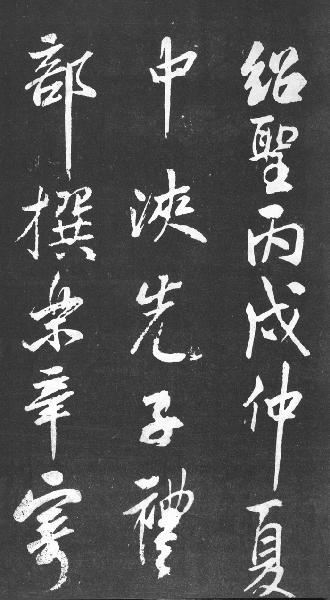 紹聖丙戌仲夏
中浹先子禮
部撰辛